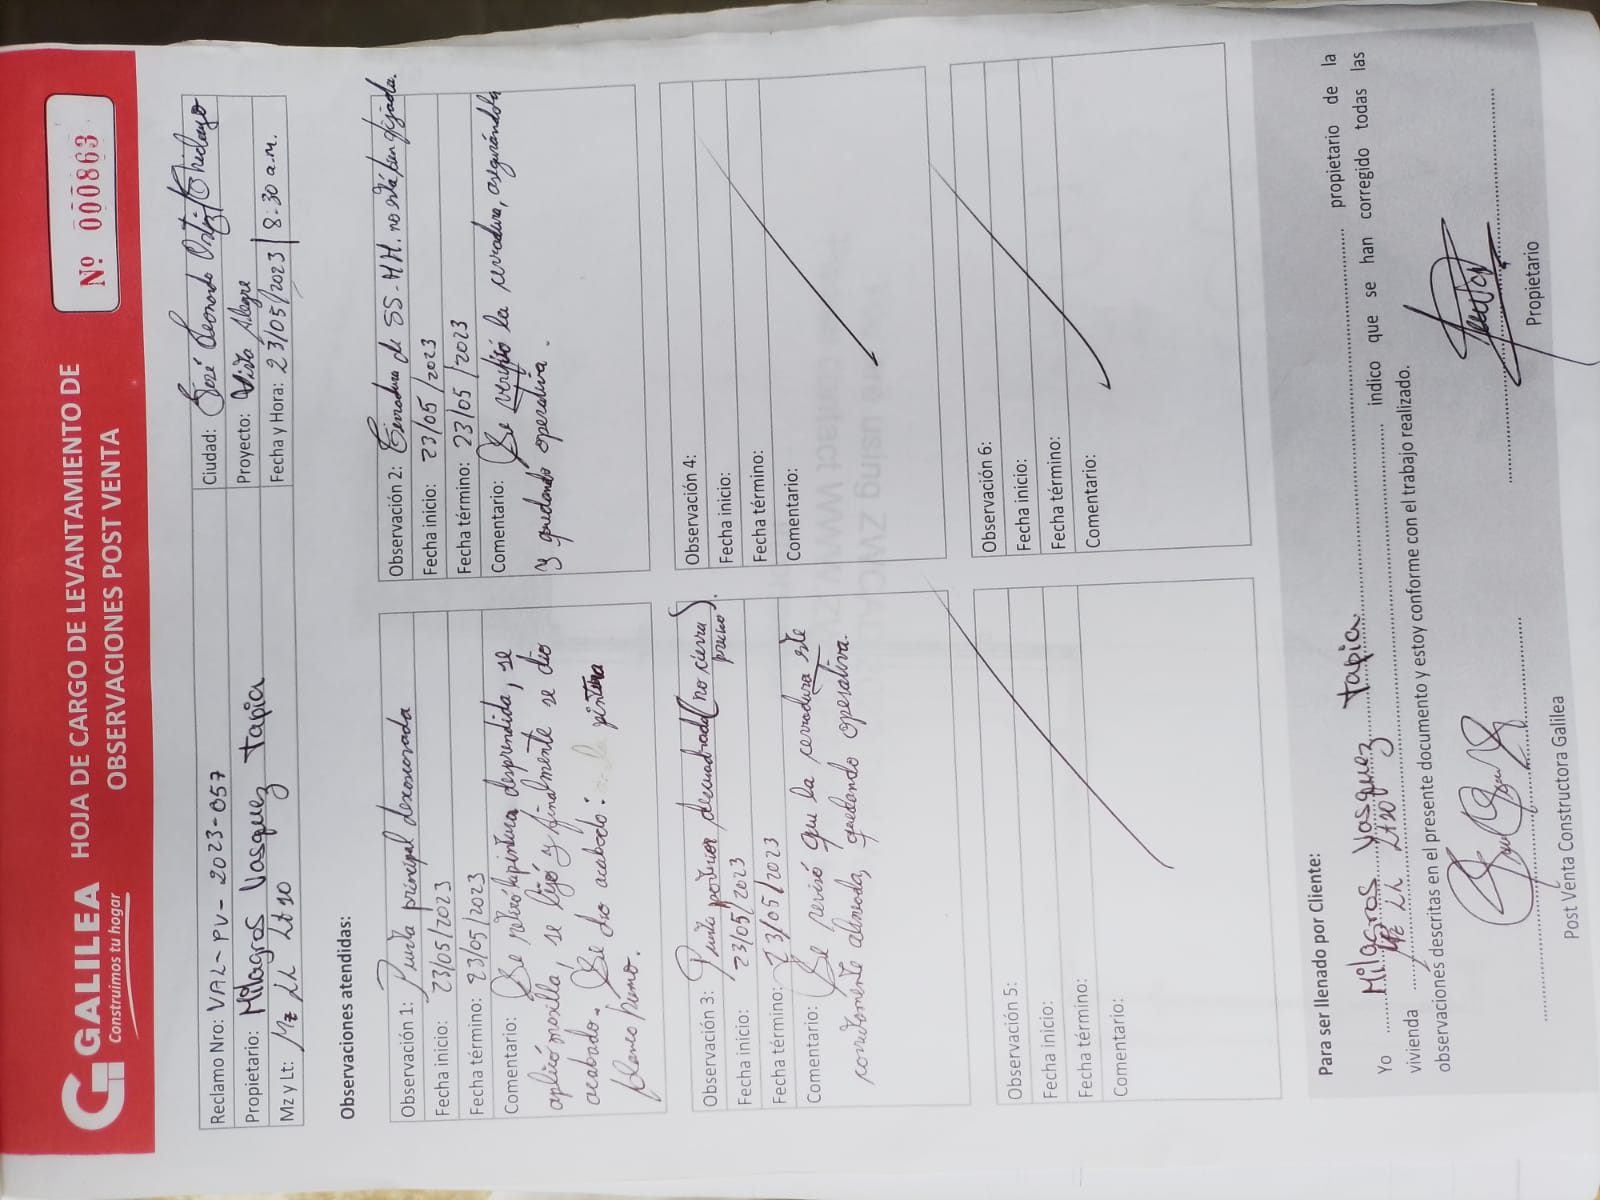 GALILEA
Construimos tu hogar
HOJA DE CARGO DE LEVANTAMIENTO DE
OBSERVACIONES POST VENTA
Nº 000863
Reclamo Nro: VAL-PV-2023-057
Ciudad: José Leonardo Ortiz/Chiclayo
Propietario: Milagros Vasquez tapia
Proyecto: Vista Alegre
Mz y Lt: Mz Lh Lt 10
Fecha y Hora: 23/05/2023 | 8:30 a.m.
Observaciones atendidas:
Observación 1: Puerta principal descascarada
Fecha inicio: 23/05/2023
Fecha término: 23/05/2023
Comentario: Se retiró la pintura desprendida, se
aplicó masilla, se lijó y finalmente se dio
acabado. Se dio acabado: pintura
blanco humo.
Observación 2: Cerradura de SS-HH. no está bien fijada.
Fecha inicio: 23/05/2023
Fecha término: 23/05/2023
Comentario: Se verifió la cerradura, asegurándola
y quedando operativa.
Observación 3: Puerta posterior descuadrada (no cierra
preciso).
Fecha inicio: 23/05/2023
Fecha término: 23/05/2023
Comentario: Se revisó que la cerradura esté
correctamente alineada, quedando operativa.
Observación 4:
Fecha inicio:
Fecha término:
Comentario:
Observación 5:
Fecha inicio:
Fecha término:
Comentario:
Observación 6:
Fecha inicio:
Fecha término:
Comentario:
Para ser llenado por Cliente:
Yo Milagros Vasquez tapia propietario de la
vivienda Mz Lh Lt 10 indico que se han corregido todas las
observaciones descritas en el presente documento y estoy conforme con el trabajo realizado.
Post Venta Constructora Galilea
Propietario